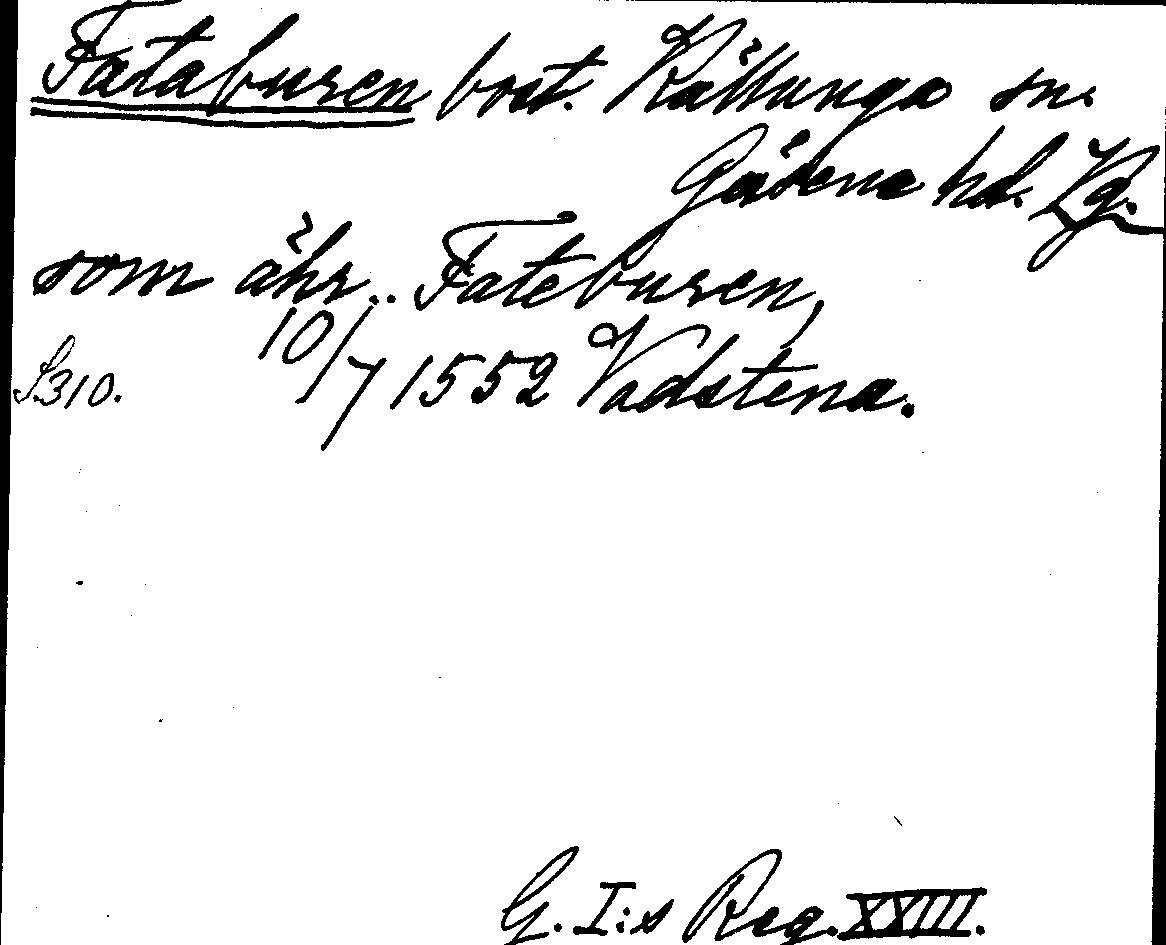 Fataburen bost. Källunga sn.
Gäsene hd. Vg.
som ähr .. Fateburen,
S.310. 10/7 1552 Vadstena.
G. I:s Reg. XXIII.